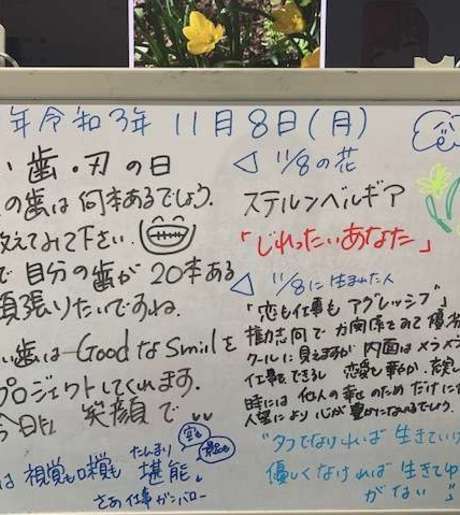 年令和3年 11月8日(月)
い歯・刃の日
の歯は何本あるでしょう.
数えてみて下さい.
で自分の歯が20本ある
頑張りたいですね.
い歯は Good な Smilを
プロジェクトしてくれます.
今日も 笑顔で
は視覚も味覚もたんまり堪能。
さあ仕事ガンバロー
◁ 11/8の花
ステルンベルギア
「じれったいあなた」
◁ 11/8に生まれた人
「恋も仕事も アグレッシブ」
権力志向で力関係をみて優劣
クールに見えますが内面はメラメラ
仕事もできるし 恋愛も華やか.
時には 他人の幸せのためだけに
人望により 心が豊かになれるでしょう.
"タフでなければ 生きていけ
優しくなければ 生きてゆ
がない"